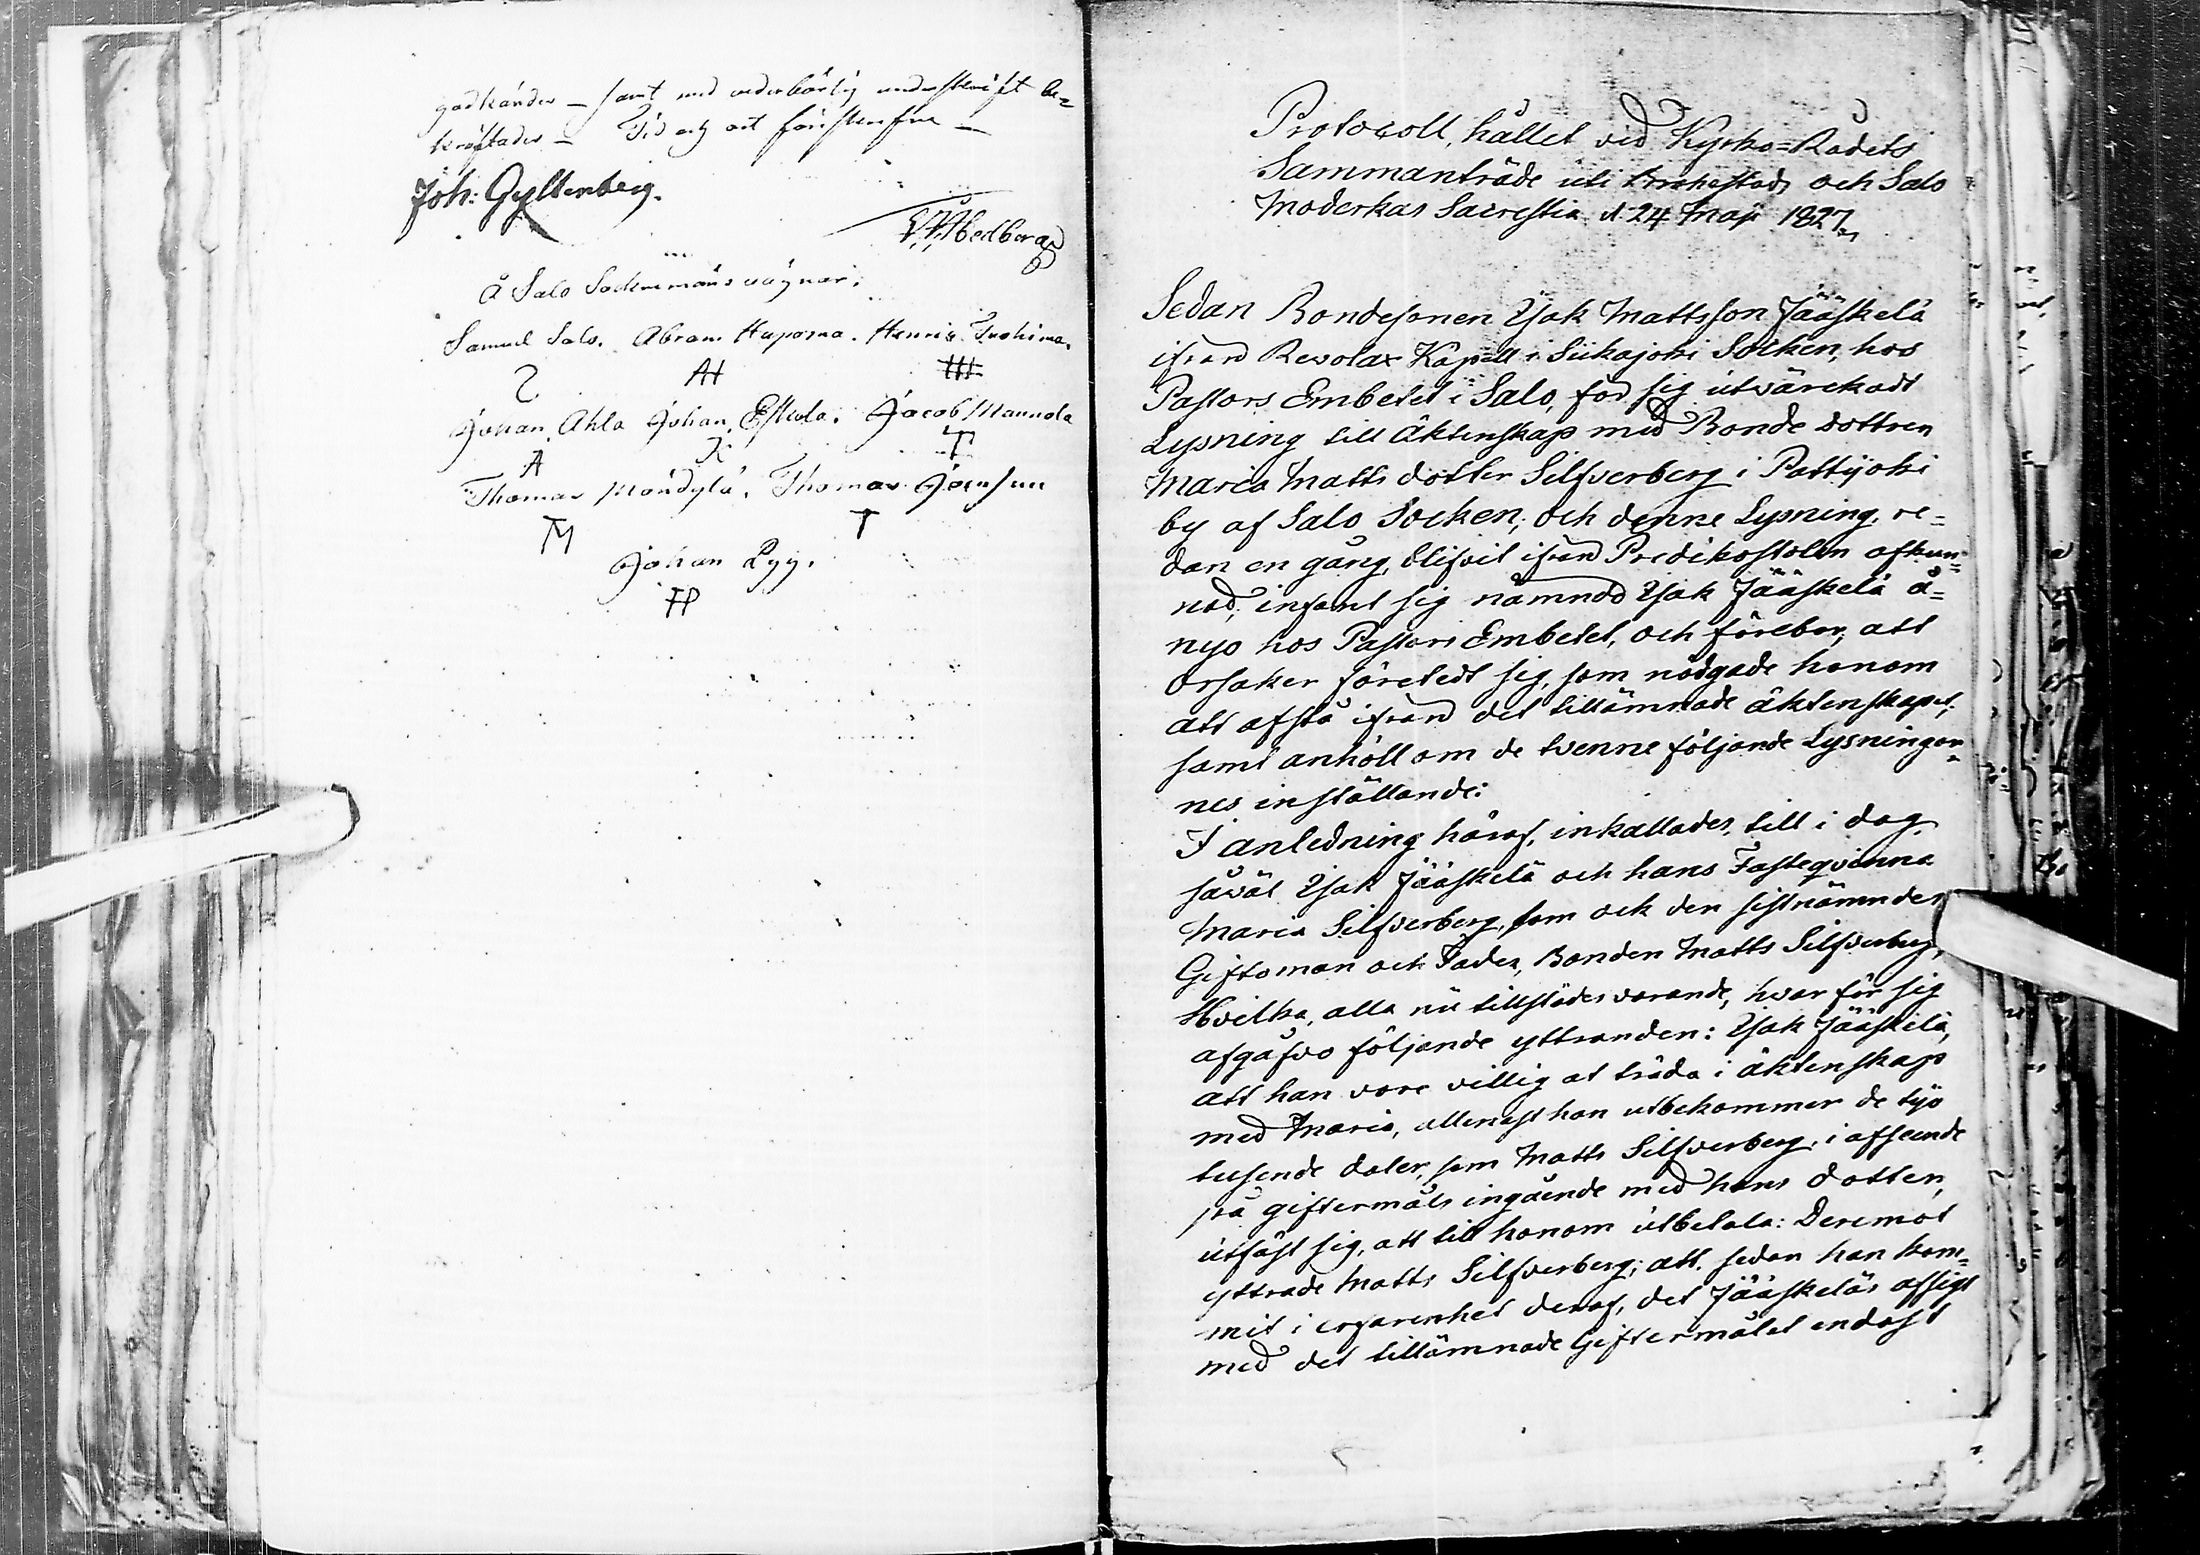 godkändes – samt med vederbörlig underskrift be=
kräftades – Tid och ort som ofvan –
Joh: Gyllenberg.
Hedberg
Å Salo Sockenmäns vägnar:
Samuel Salo. Abram Haporna. Henric Tuohima.
AH
Johan Ahla Johan Eskola. Jacob Mannola
A K T
Thomas Mändylä. Thomas
TM T
Johan Pyy.
JP
Protocoll, hållet vid Kyrko=Rådets
Sammanträde uti Brahestads och Salo
Moderkas Sacrestia d 24 Maji 1827.
Sedan Bondesonen Isak Mattsson Jääskelä
ifrån Revolax Kapell i Siikajoki Socken, hos
Pastors Embetet i Salo, för sig utvärckadt
Lysning till Äktenskap med Bonde dottren
Maria Matts dotter Silfverberg i Pattijoki
by af Salo Socken; och denne Lysning, re=
dan en gång, blifvit ifrån Predikostolen afkun=
nad; infant sig nämnde Isak Jääskelä å=
nyo hos Pastors Embetet, och förebar, att
orsaker företedt sig, som nödgade honom
att afstå ifrån det tillämnade äktenskapet,
samt anhöll om de tvenne följande Lysningar=
nes inställande:
I anledning häraf, inkallades, till i dag
såväl Isak Jääskelä och hans Fästeqvinna
Maria Silfverberg, som ock den sistnämndes
Giftoman och Fader, Bonden Matts Silfverberg,
Hvilka, alla nu tillstädes varande, hvar för sig
afgåfvo följande yttranden: Isak Jääskelä,
att han vore villig at träda i äktenskap
med Maria, allenast han utbekommer de tijo
tusende daler, som Matts Silfverberg, i afseende
på giftermåls ingående med hans dotter,
utfäst sig, att till honom utbetala: Deremot
yttrade Matts Silfverberg; att, sedan han kom=
mit i erfarenhet deraf, det Jääskeläs afsigt
med det tillämnade Giftermålet endast